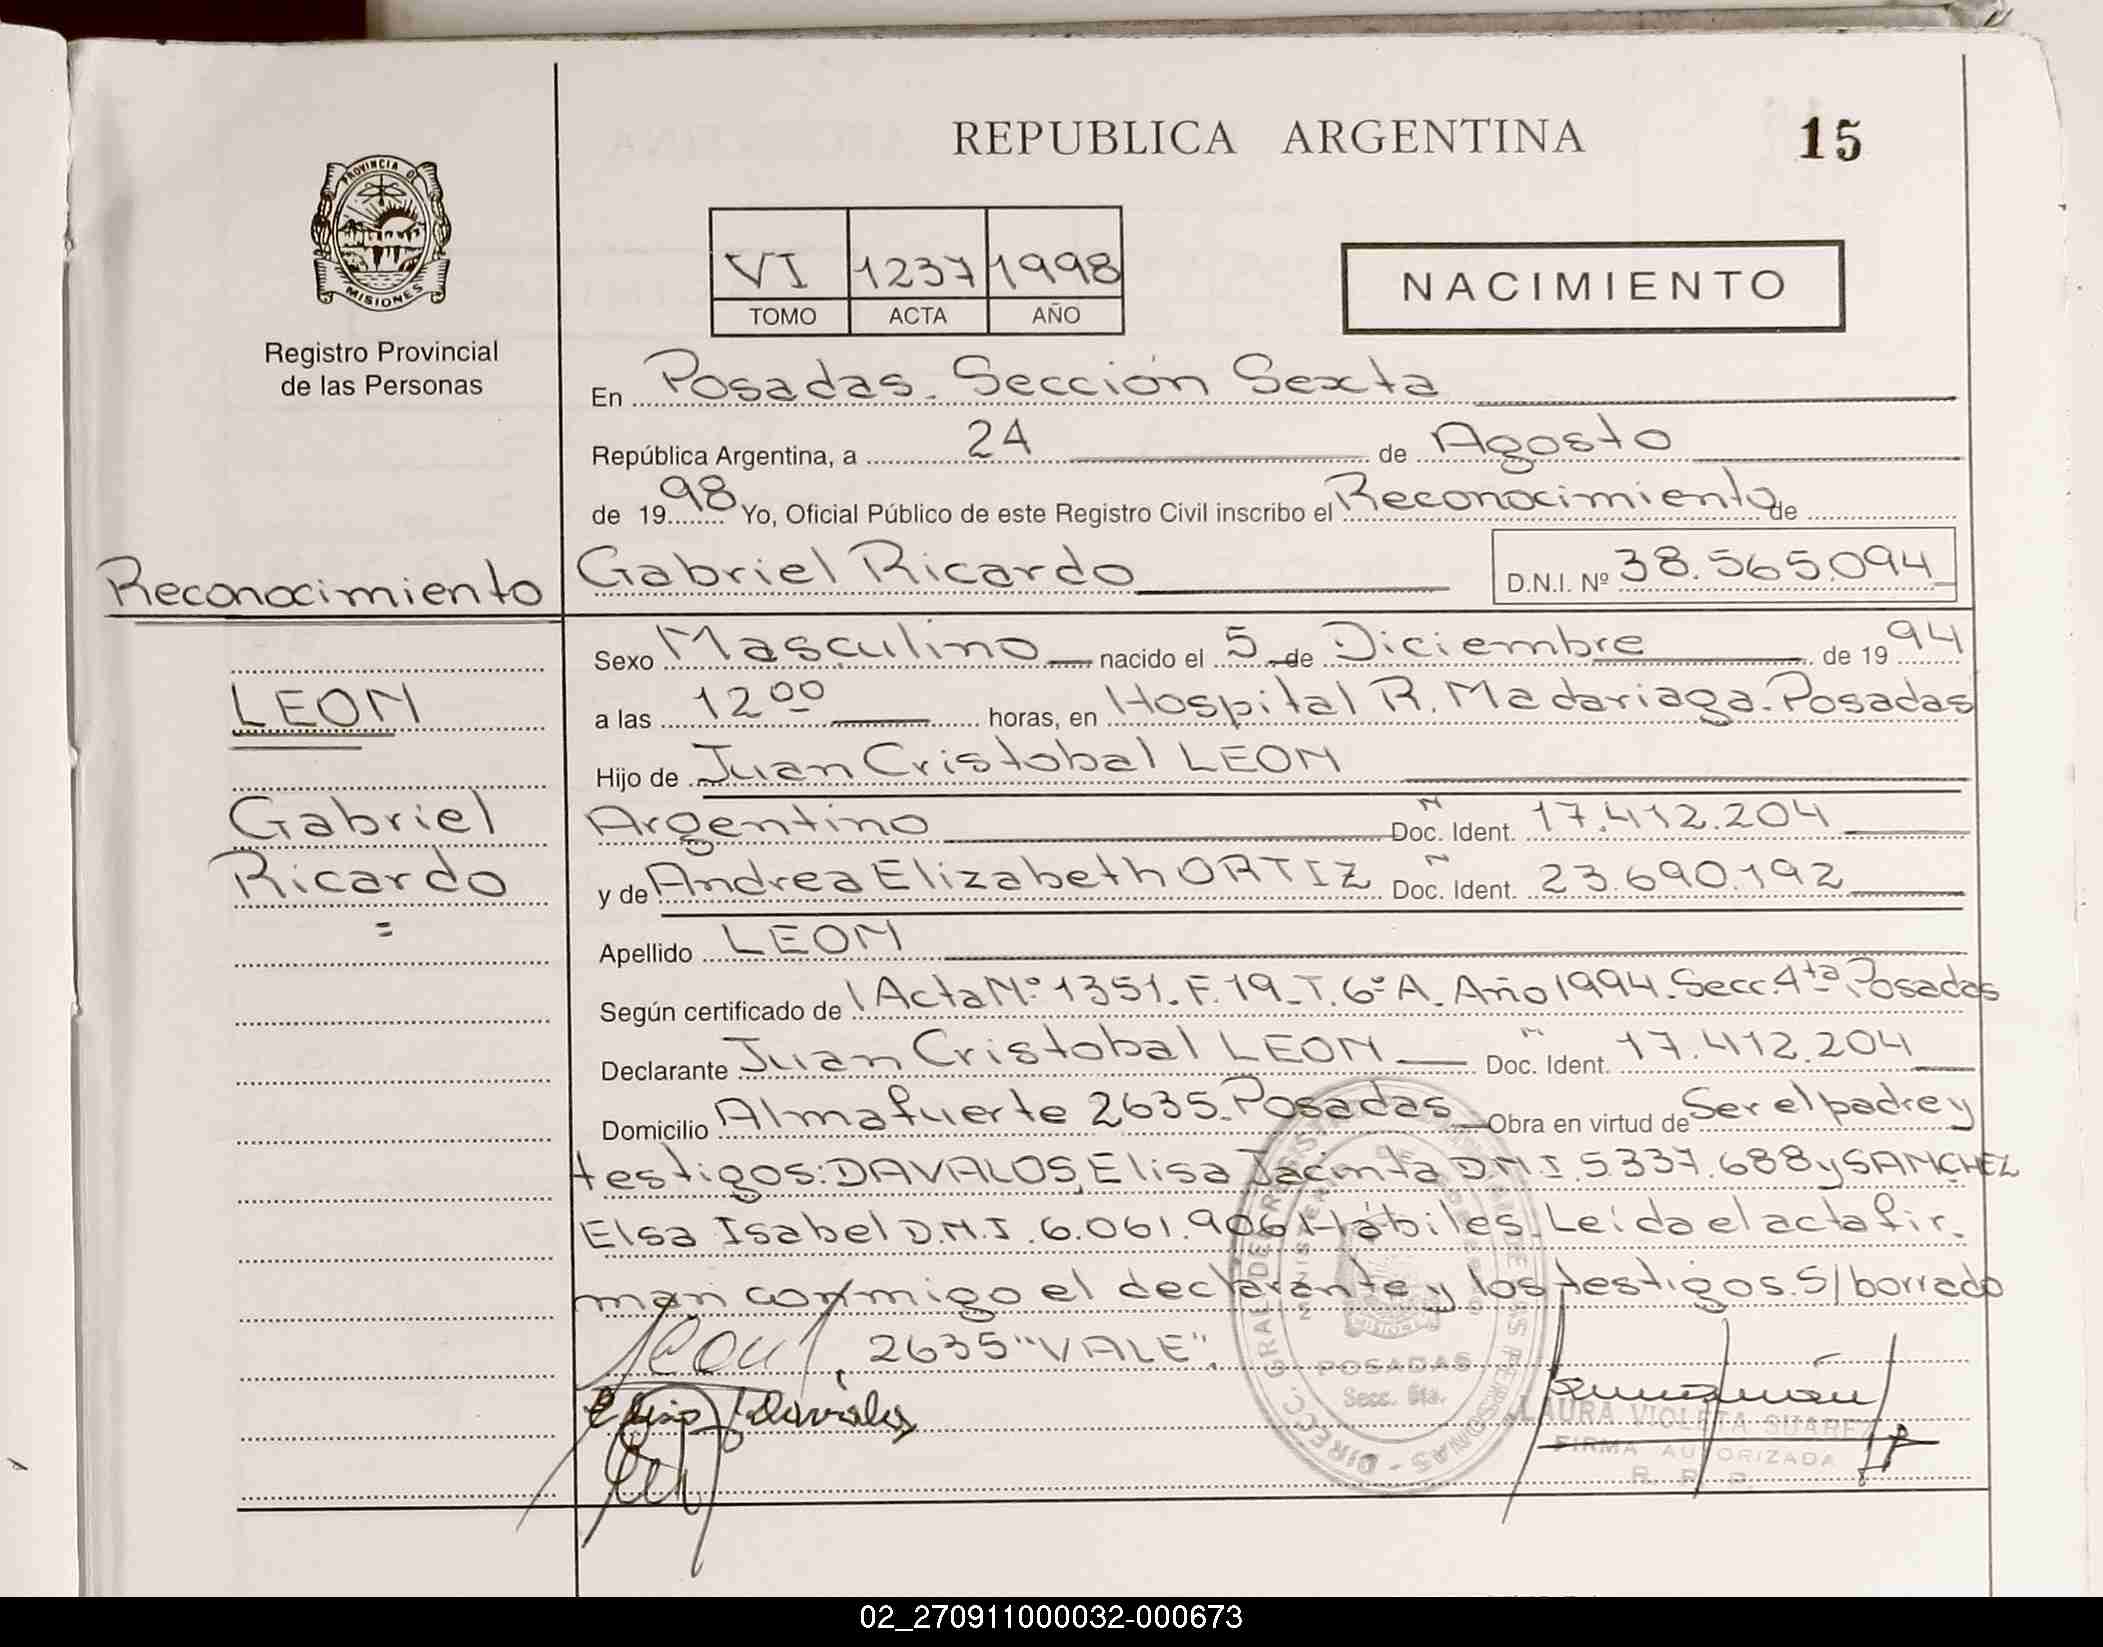 REPUBLICA ARGENTINA
15
PROVINCIA DE
MISIONES
Registro Provincial
de las Personas
VI 1237 1998
TOMO ACTA AÑO
NACIMIENTO
En Posadas. Sección Sexta
República Argentina, a 24 de Agosto
de 1998 Yo, Oficial Público de este Registro Civil inscribo el Reconocimiento de
Reconocimiento
Gabriel Ricardo D.N.I. Nº 38.565.094
LEON
Gabriel
Ricardo
Sexo Masculino nacido el 5 de Diciembre de 1994
a las 12 00 horas, en Hospital R. Madariaga. Posadas
Hijo de Juan Cristobal LEON
Argentino N Doc. Ident. 17.412.204
y de Andrea Elizabeth ORTIZ N Doc. Ident. 23.690.192
Apellido LEON
Según certificado de Acta N.º 1351. F. 19. T. 6º A. Año 1994. Secc. 4ta Posadas
Declarante Juan Cristobal LEON N Doc. Ident. 17.412.204
Domicilio Almafuerte 2635. Posadas Obra en virtud de Ser el padre y
testigos: DAVALOS, Elisa Jacinta D.N.I. 5337.688 y SANCHEZ
Elsa Isabel D.N.I. 6.061.906 Hábiles. Leída el acta fir-
man conmigo el declarante y los testigos. S/borrado
2635 "VALE".
Leon
Elisa Dávalos
POSADAS
Secc. 6ta.
LAURA VIOLETA SUAREZ
FIRMA AUTORIZADA
R. P. P.
02_270911000032-000673